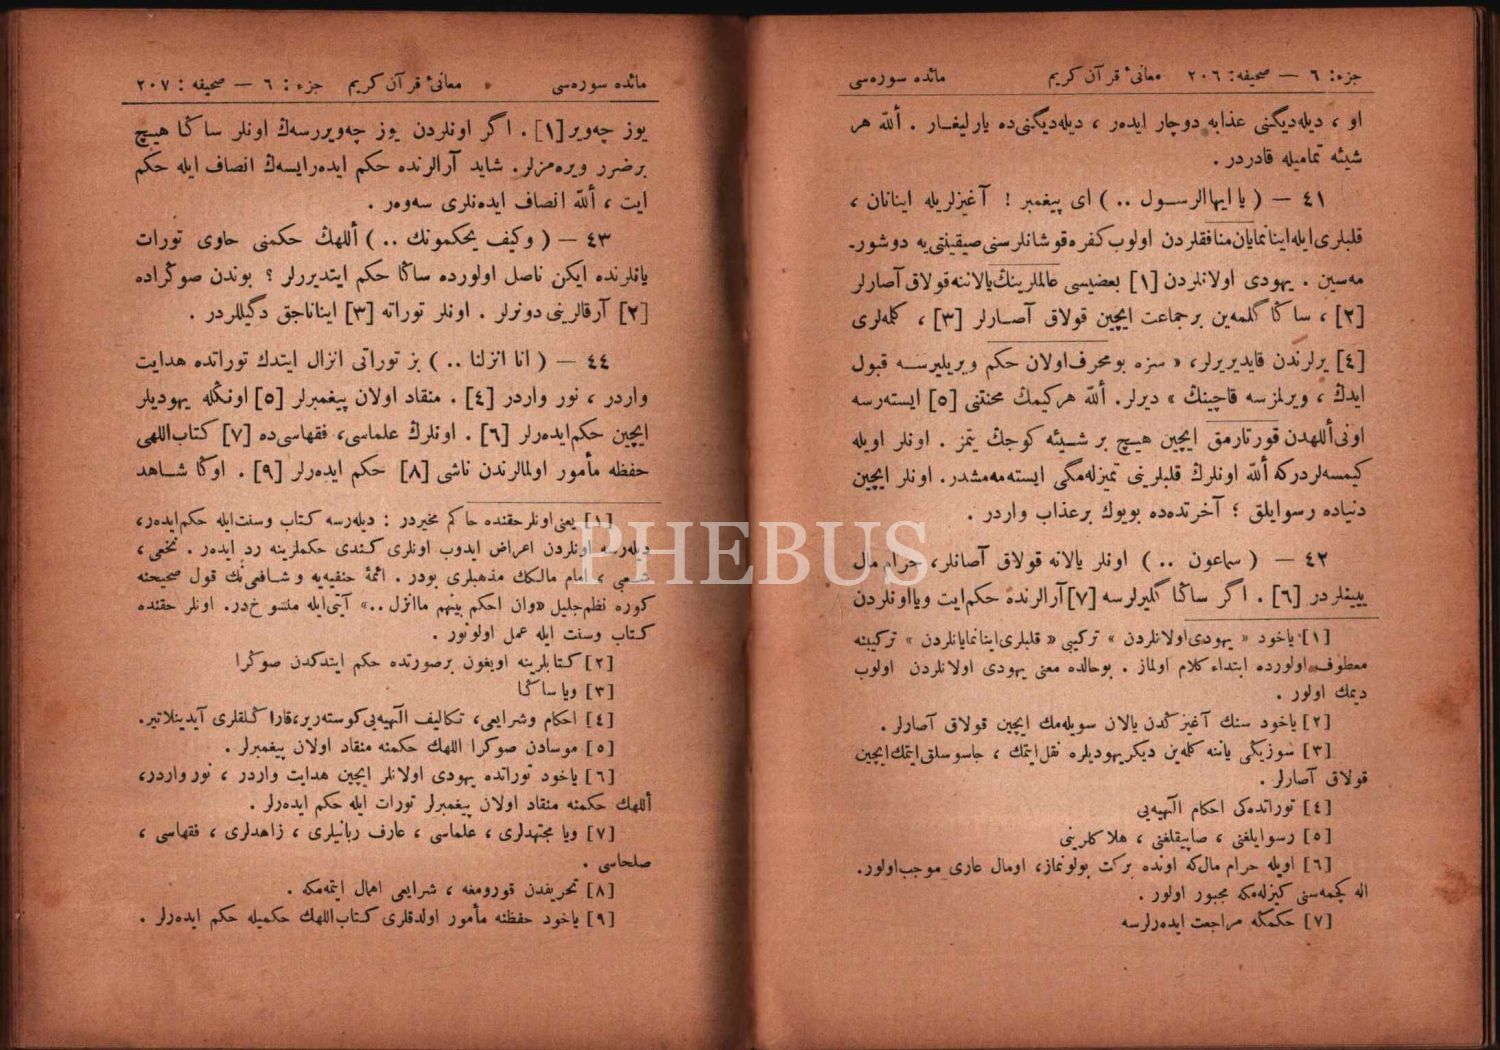 جزء: ٦ — صحيفه: ٢٠٦ معانئ قرآن كريم مائده سوره‌سى
او ، ديله‌ديگنى عذابه دوچار ايده‌ر ، ديله‌ديگنى‌ده يارليغار . ألله هر
شيئه تماميله قادردر .
٤١ — ( يا ايهاالرسول .. ) اى پيغمبر ! آغيزلريله اينانان ،
قلبلرى ايله اينانمايان منافقلردن اولوب كفره قوشانلرسنى صيقينتى‌يه دوشور-
مه‌سين . يهودى اولانلردن [١] بعضيسى عالملرينك يالاننه قولاق آصارلر
[٢] ، ساڭا گلمه‌ين برجماعت ايچين قولاق آصارلر [٣] ، كلمه‌لرى
[٤] يرلرندن قايديريرلر، « سزه بومحرف اولان حكم ويريليرسه قبول
ايدك ، ويرلمزسه قاچينك » ديرلر. ألله هركيمك محنتنى [٥] ايسته‌رسه
اونى أللهدن قورتارمق ايچين هيچ بر شيئه كوجك يتمز . اونلر اويله
كيمسه‌لردركه ألله اونلرك قلبلرينى تميزله‌مگى ايسته‌مه‌مشدر. اونلر ايچين
دنياده رسوايلق ؛ آخرتده‌ده بويوك برعذاب واردر .
٤٢ — ( سماعون .. ) اونلر يالانه قولاق آصانلر، حرام مال
ييينلردر [٦] . اگر ساڭا گليرلرسه [٧] آرالرنده حكم ايت ويا اونلردن
[١] ياخود « يهودى اولانلردن » تركيبى « قلبلرى اينانمايانلردن » تركيبنه
معطوف اولورده ابتداء كلام اولماز . بوحالده معنى يهودى اولانلردن اولوب
ديمك اولور .
[٢] ياخود سنك آغيزڭدن يالان سويله‌مك ايچين قولاق آصارلر .
[٣] سوزيڭى ياننه كله‌ين ديكر يهوديلره نقل ايتمك ، جاسوسلق ايتمك ايچين
قولاق آصارلر .
[٤] توراتده‌كى احكام الٓهيه‌يى
[٥] رسوايلغنى ، صاپيقلغنى ، هلاكلرينى
[٦] اويله حرام مال‌كه اونده بركت بولونماز، اومال عارى موجب اولور.
اله كچمه‌سنى كيزله‌مكه مجبور اولور .
[٧] حكمكه مراجعت ايده‌رلرسه
مائده سوره‌سى معانئ قرآن كريم جزء : ٦ — صحيفه : ٢٠٧
يوز چه‌وير [١] . اگر اونلردن يوز چه‌ويررسه‌ك اونلر ساڭا هيچ
برضرر ويره‌مزلر. شايد آرالرنده حكم ايده‌رايسه‌ك انصاف ايله حكم
ايت ، ألله انصاف ايده‌نلرى سه‌وه‌ر .
٤٣ — ( وكيف يحكمونك .. ) أللهك حكمنى حاوى تورات
يانلرنده ايكن ناصل اولورده ساڭا حكم ايتديررلر ؟ بوندن صوڭراده
[٢] آرقالرينى دونرلر . اونلر توراته [٣] ايناناجق دگيللردر .
٤٤ — ( انا انزلنا .. ) بز توراتى انزال ايتدك توراتده هدايت
واردر ، نور واردر [٤] . منقاد اولان پيغمبرلر [٥] اونكله يهوديلر
ايچين حكم ايده‌رلر [٦] . اونلرك علماسى، فقهاسى‌ده [٧] كتاب اللهى
حفظه مأمور اولمالرندن ناشى [٨] حكم ايده‌رلر [٩] . اوڭا شاهد
[١] يعنى اونلر حقنده حاكم مخيردر : ديله‌رسه كتاب وسنت ايله حكم ايده‌ر،
ديله‌رسه اونلردن اعراض ايدوب اونلرى كندى حكملرينه رد ايده‌ر . نخعى ،
شعبى ، امام مالكك مذهبلرى بودر . ائمهٔ حنفيه‌يه و شافعى‌نك قول صحيحنه
كوره نظم جليل «وان احكم بينهم ماانزل ..» آيتى ايله منسوخ‌در. اونلر حقنده
كتاب وسنت ايله عمل اولونور .
[٢] كتابلرينه اويغون برصورتده حكم ايتدكدن صوڭرا
[٣] ويا ساڭا
[٤] احكام وشرايعى، تكاليف الٓهيه‌يى كوسته‌رير، قاراڭلقلرى آيدينلاتير.
[٥] موسادن صوكرا اللهك حكمنه منقاد اولان پيغمبرلر .
[٦] ياخود توراتده يهودى اولانلر ايچين هدايت واردر ، نور واردر،
أللهك حكمنه منقاد اولان پيغمبرلر تورات ايله حكم ايده‌رلر .
[٧] ويا مجتهدلرى ، علماسى ، عارف ربانيلرى ، زاهدلرى ، فقهاسى ،
صلحاسى .
[٨] تحريفدن قورومغه ، شرايعى اهمال ايتمه‌مكه .
[٩] ياخود حفظنه مأمور اولدقلرى كتاب اللهك حكميله حكم ايده‌رلر .
PHEBUS